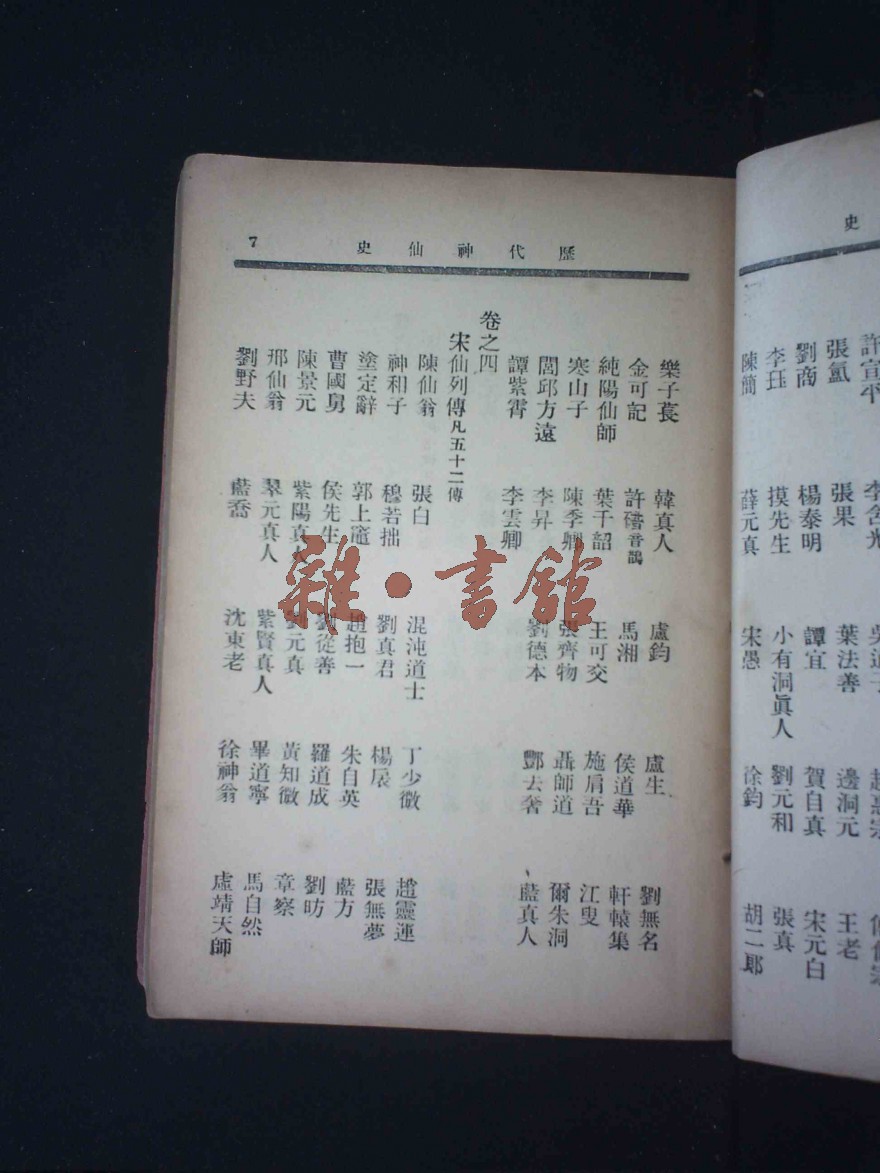 史
張氳 張果 葉法善 邊洞元 王老
劉商 楊泰明 譚宜 賀自真 宋元白
李珏 摸先生 小有洞眞人 劉元和 張真
陳簡 薛元真 宋愚 徐鈞 胡二郎
歷代神仙史
7
樂子萇 韓真人 盧鈞 盧生 劉無名
金可記 許碏音鵲 馬湘 侯道華 軒轅集
純陽仙師 葉千韶 王可交 施肩吾 江叟
寒山子 陳季卿 張齊物 聶師道 爾朱洞
閭邱方遠 李昇 劉德本 酆去奢 藍真人
譚紫霄 李雲卿
卷之四
宋仙列傳凡五十二傳
陳仙翁 張白 混沌道士 丁少微 趙靈運
神和子 穆若拙 劉真君 楊扆 張無夢
塗定辭 郭上竈 趙抱一 朱自英 藍方
曹國舅 侯先生 劉從善 羅道成 劉昉
陳景元 紫陽真人 劉元真 黃知微 章察
邢仙翁 翠元真人 紫賢真人 畢道寧 馬自然
劉野夫 藍喬 沈東老 徐神翁 虛靖天師
雜·書館